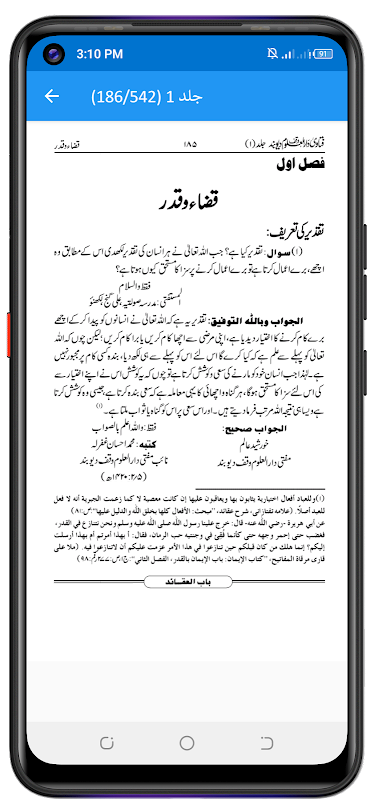 3:10 PM
91
جلد 1 (186/542)
فتاویٰ دارالعلوم وقف دیوبند جلد (۱) ۱۸۵ قضاء وقدر
فصل اول
قضاء وقدر
تقدیر کی تعریف:
(۱) سوال: تقدیر کیا ہے؟ جب اللہ تعالیٰ نے ہر انسان کی تقدیر لکھدی اس کے مطابق وہ
اچھے، برے اعمال کرتا ہے تو برے اعمال کرنے پر سزا کا مستحق کیوں ہوتا ہے؟
فقط والسلام
المستفتی: مدرسہ صولتیہ، علی گنج لکھنؤ
الجواب وباللہ التوفیق: تقدیر یہ ہے کہ اللہ تعالیٰ نے انسانوں کو پیدا کر کے اچھے
برے کام کرنے کا اختیار دیدیا ہے، اپنی مرضی سے اچھا کام کریں یا برا کام کریں؛ لیکن چوں کہ اللہ
تعالیٰ کو پہلے سے علم ہے کہ کیا کرے گا اس لئے اس کو پہلے سے ہی لکھ دیا، بندہ کسی کام پر مجبور نہیں
ہے۔ لہٰذا جب انسان خود کو مارنے کی سعی وکوشش کرتا ہے تو چوں کہ یہ کوشش اس نے اپنے اختیار سے
کی اس لئے سزا کا مستحق ہوگا، ہر گناہ و اچھائی کا یہی معاملہ ہے کہ سعی بندہ کرتا ہے، جیسی وہ کوشش کرتا
ہے ویسا ہی نتیجہ اللہ مرتب فرما دیتے ہیں۔ اور اس سعی پر اس کو گناہ یا ثواب ملتا ہے۔(۱)
الجواب صحیح: فقط: واللہ اعلم بالصواب
خورشید عالم کتبہ: محمد احسان غفرلہ
مفتی دارالعلوم وقف دیوبند نائب مفتی دارالعلوم وقف دیوبند
(۱۴۲۰/۲/۵ھ)
(۱) وللعباد أفعال اختيارية يثابون بها ويعاقبون عليها إن كانت معصية لا كما زعمت الجبرية أنه لا فعل
للعبد أصلاً. (علامه تفتازانی، شرح عقائد، "مبحث: الأفعال كلها بخلق الله والدليل عليها": ص: ۸۱)
عن أبي هريرة -رضي الله عنه- قال: خرج علينا رسول الله صلى الله عليه وسلم ونحن نتنازع في القدر،
فغضب حتى إحمر وجهه حتى كأنما فقئ في وجنتيه حب الرمان، فقال: أ بهذا أمرتم أم بهذا أرسلت
إليكم؟ إنما هلك من كان قبلكم حين تنازعوا في هذا الأمر عزمت عليكم أن لاتنازعوا فيه. (ملا علی
قاری مرقاة المفاتيح، "كتاب الإيمان: باب الإيمان بالقدر، الفصل الثاني": ج ۱، ص: ۲۷۷، رقم: ۹۸)
باب العقائد